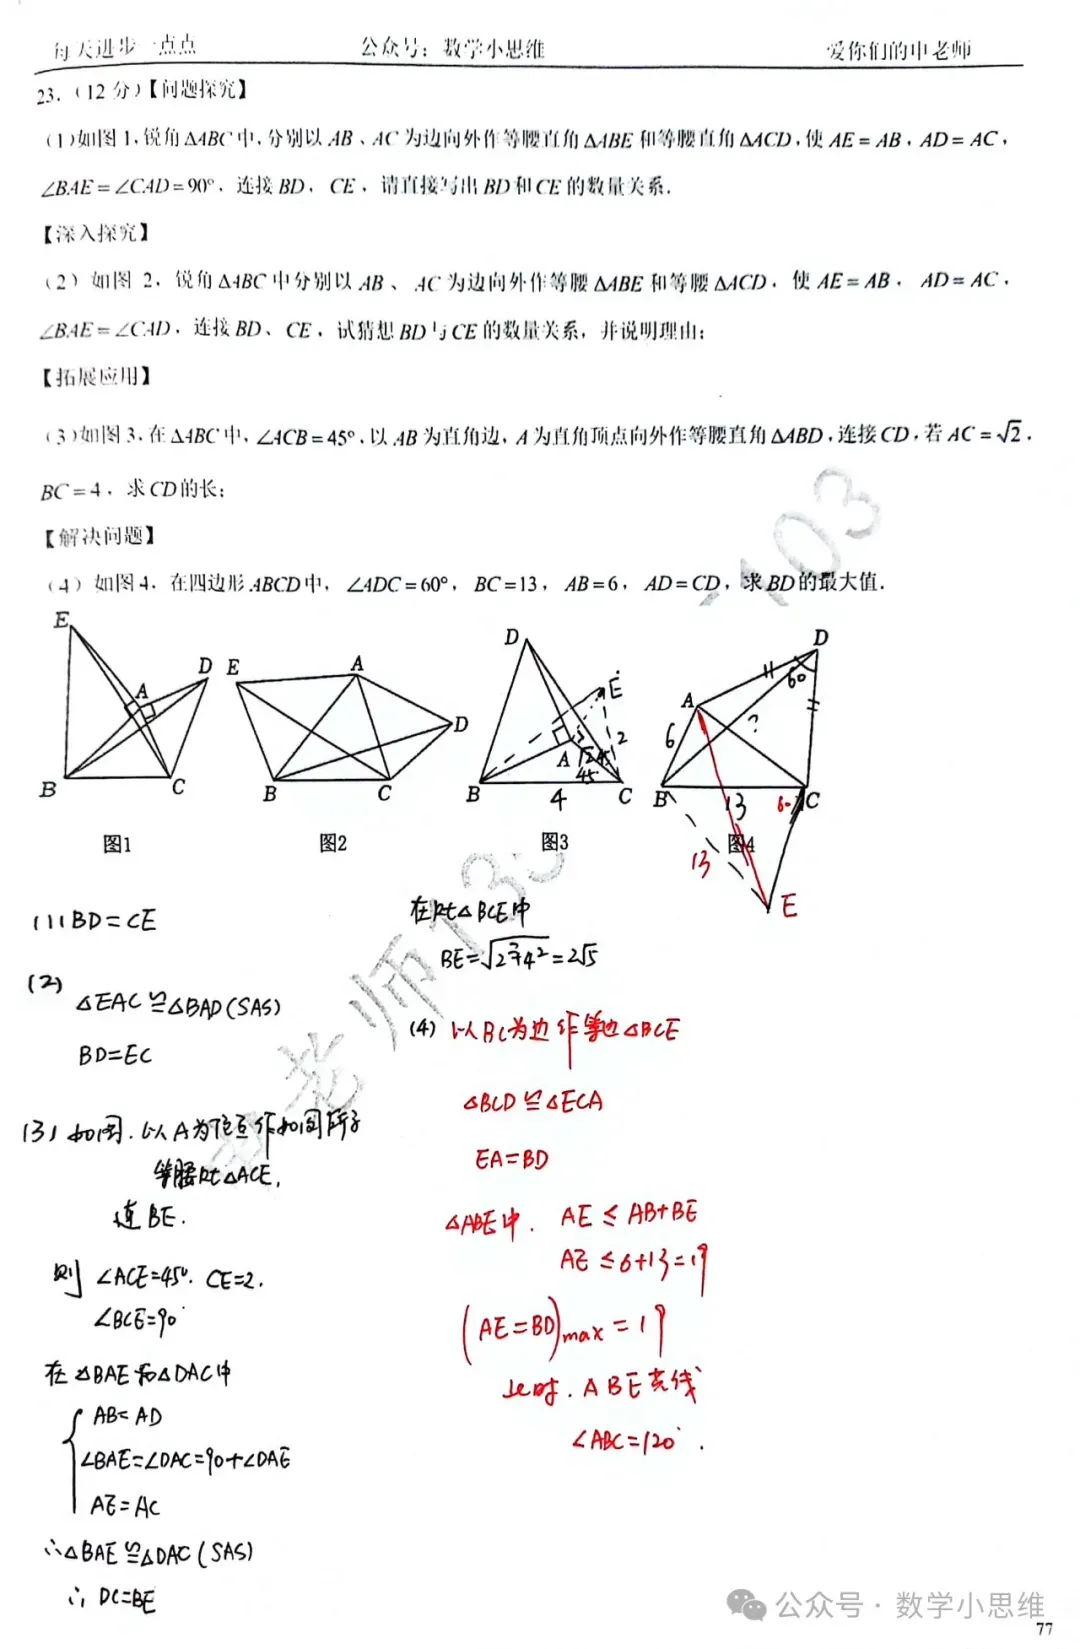 每天进步一点点 公众号：数学小思维 爱你们的申老师
23.（12分）【问题探究】
（1）如图1，锐角△ABC中，分别以AB、AC为边向外作等腰直角△ABE和等腰直角△ACD，使AE=AB，AD=AC，
∠BAE=∠CAD=90°，连接BD，CE，请直接写出BD和CE的数量关系.
【深入探究】
（2）如图2，锐角△ABC中分别以AB、AC为边向外作等腰△ABE和等腰△ACD，使AE=AB，AD=AC，
∠BAE=∠CAD，连接BD、CE，试猜想BD与CE的数量关系，并说明理由；
【拓展应用】
（3）如图3，在△ABC中，∠ACB=45°，以AB为直角边，A为直角顶点向外作等腰直角△ABD，连接CD，若AC=√2，
BC=4，求CD的长；
【解决问题】
（4）如图4，在四边形ABCD中，∠ADC=60°，BC=13，AB=6，AD=CD，求BD的最大值.
E A D B C
图1
E A D B C
图2
D E A √2 45 45 2 B 4 C
图3
D 60 A 6 ? B 13 60 C 13 E
图4
(1) BD=CE
(2)
△EAC≌△BAD(SAS)
BD=EC
(3) 如图，以A为顶点作如图所示
等腰Rt△ACE，
连BE.
则 ∠ACE=45°. CE=2.
∠BCE=90°
在△BAE和△DAC中
AB=AD
∠BAE=∠DAC=90+∠DAE
AE=AC
∴△BAE≌△DAC(SAS)
∴ DC=BE
在Rt△BCE中
BE=√2²+4²=2√5
(4) 以BC为边作等边△BCE
△BCD≌△ECA
EA=BD
△ABE中. AE≤AB+BE
AE≤6+13=19
(AE=BD)max=19
此时. ABE共线
∠ABC=120°.
公众号·数学小思维
77